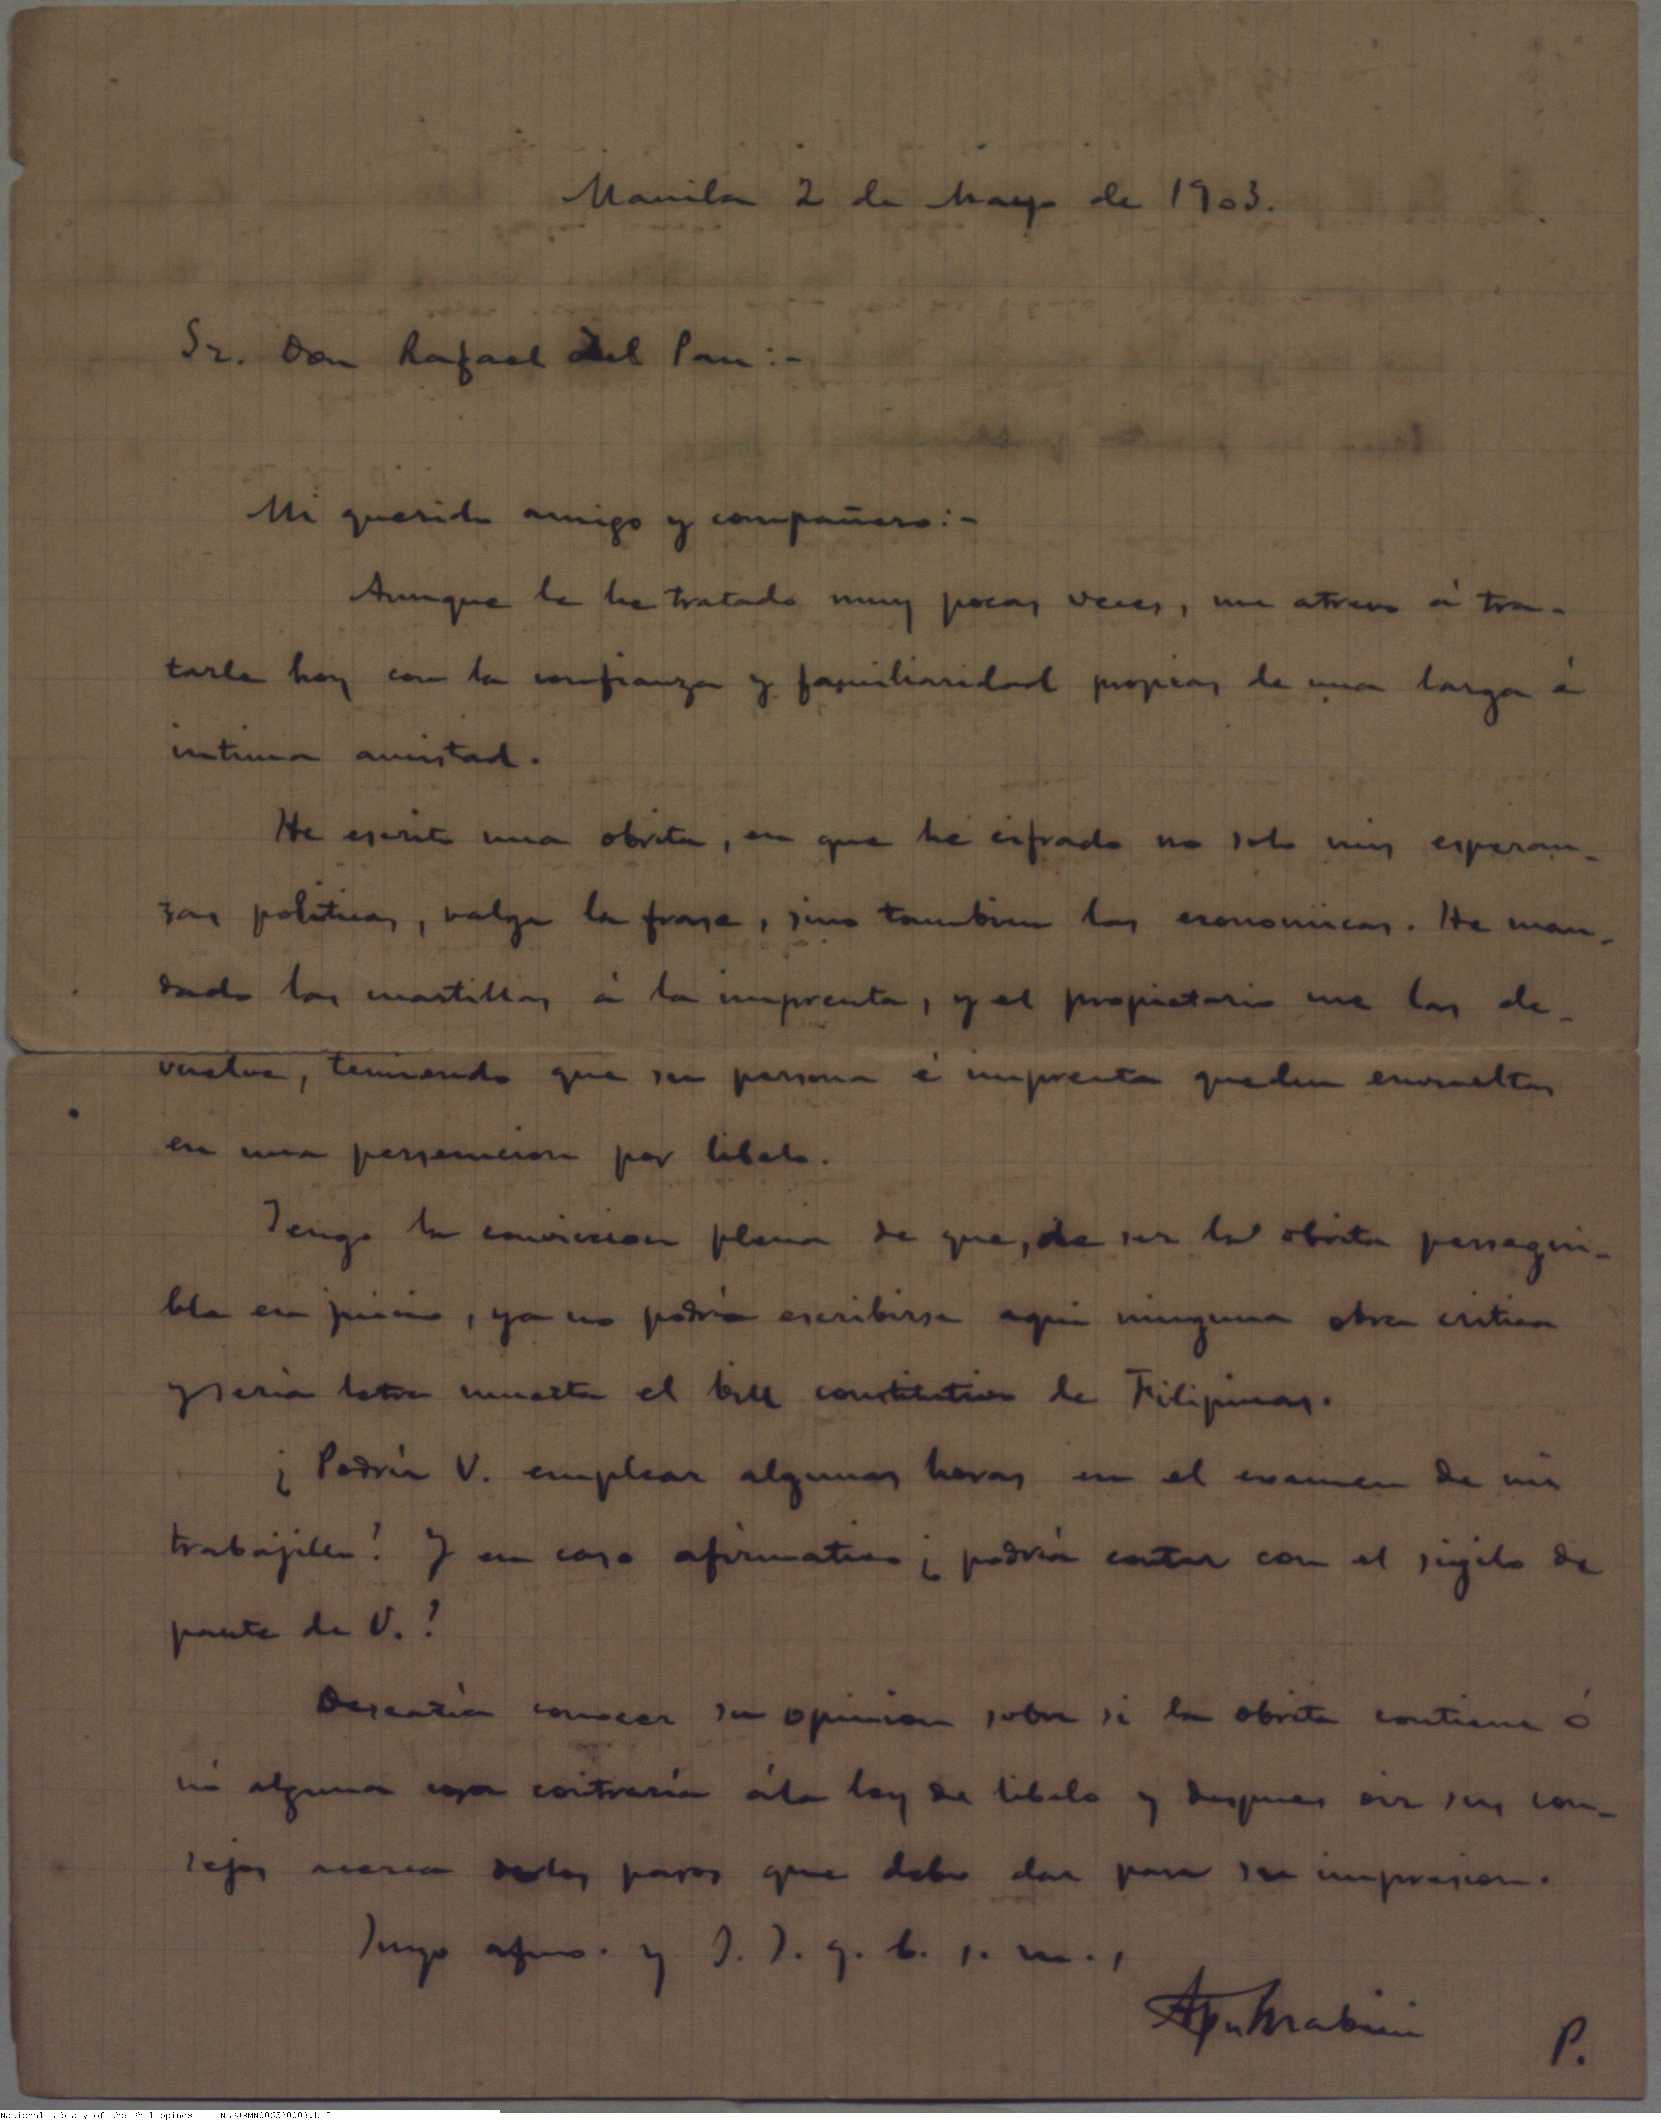 Manila 2 de Mayo de 1903.
Sr. Don Rafael del Pan:-
Mi querido amigo y compañero:-
Aunque le he tratado muy pocas veces, me atrevo á tra-
tarle hoy con la confianza y familiaridad propias de una larga é
intima amistad.
He escrito una obrita, en que he cifrado no solo mis esperan-
zas politicas, valga la frase, sino tambien las economicas. He man-
dado las cuartillas á la imprenta, y el propietario me las de-
vuelve, temiendo que su persona é imprenta queden envueltas
en una persecucion por libelo.
Tengo la conviccion plena de que, de ser la obrita persegui-
ble en juicio, ya no podría escribirse aqui ninguna obra critica
y seria letra muerta el bill constitutivo de Filipinas.
¿Podría V. emplear algunas horas en el examen de mi
trabajillo? Y en caso afirmativo ¿podría contar con el sigilo de
parte de V.?
Desearía conocer su opinion sobre si la obrita contiene ó
nó alguna cosa contraria á la ley de libelo y despues oir sus con-
sejos acerca de los pasos que debo dar para su impresion.
Suyo afmo. y S. S. q. b. s. m.,
Ap. Mabini
P.
National Library of the Philippines